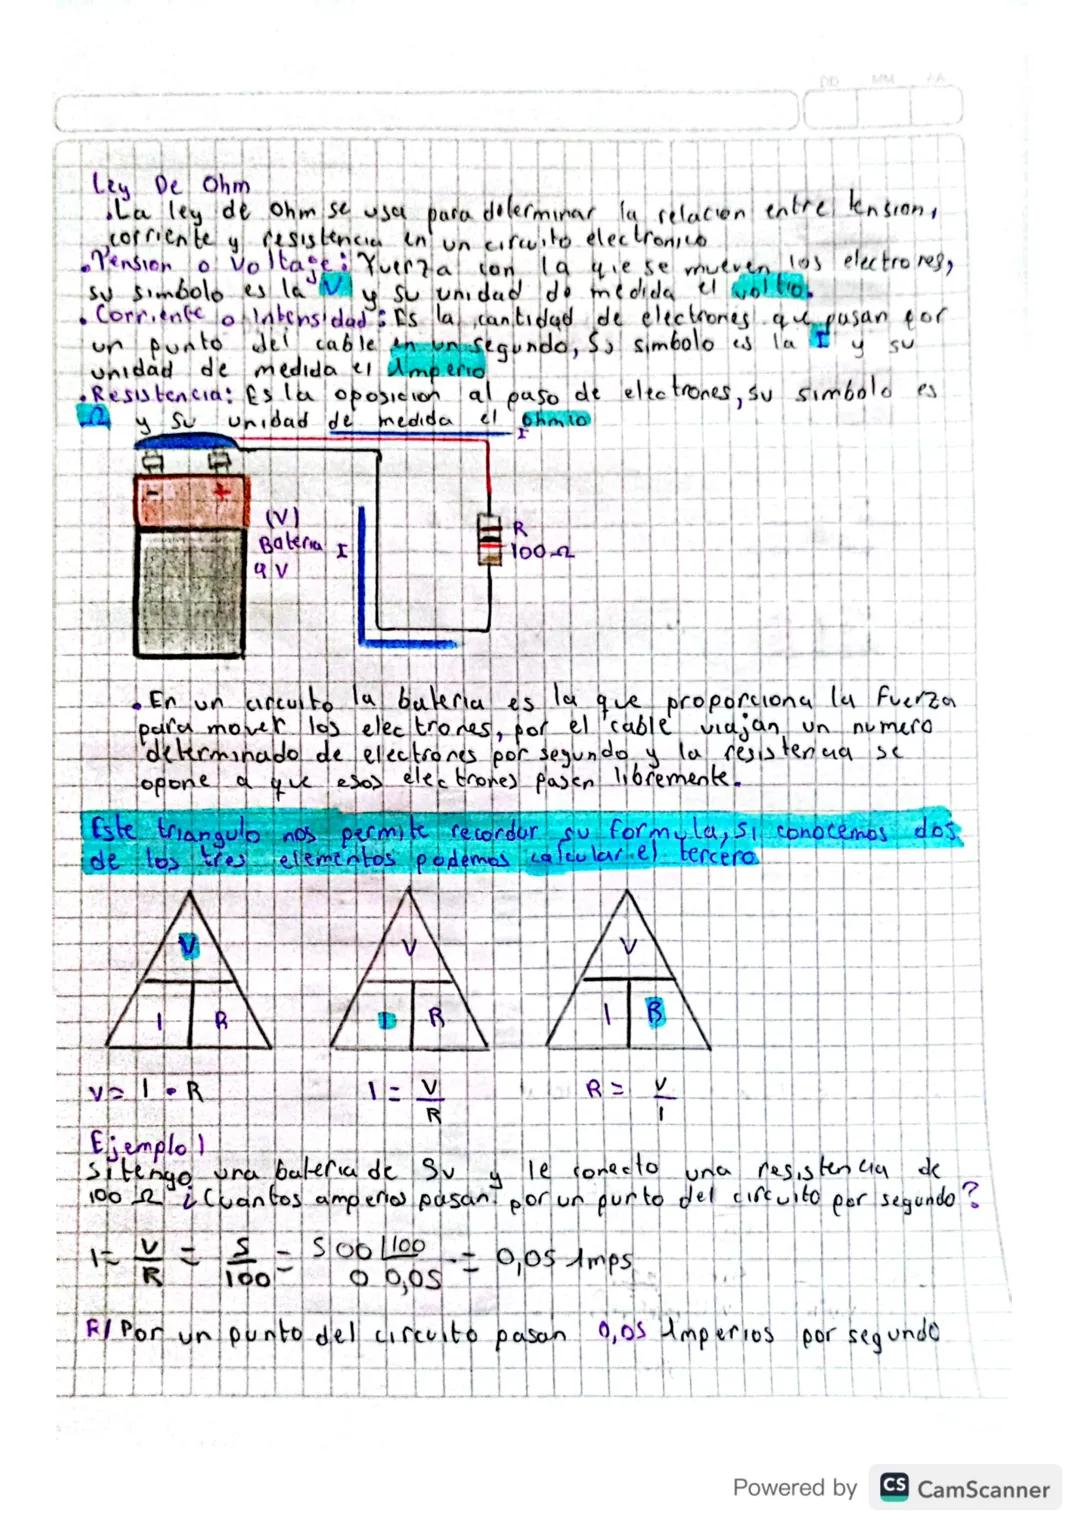 DD MM AA
Ley De Ohm
.La ley de Ohm se usa para determinar la relacion entre tension,
corriente y resistencia en un circuito electronico
.Tension o Voltage: Fuerza con la que se mueven los electrones,
su simbolo es la V y su unidad de medida el voltio.
.Corriente o Intensidad: Es la cantidad de electrones que pasan por
un punto del cable en un segundo, Su simbolo es la I y su
unidad de medida el Amperio
.Resistencia: Es la oposicion al paso de electrones, su simbolo es
Ω y su unidad de medida el ohmio
I
- +
(V)
Bateria
9 V
I
R
100 Ω
.En un circuito la bateria es la que proporciona la fuerza
para mover los electrones, por el cable viajan un numero
determinado de electrones por segundo y la resistencia se
opone a que esos electrones pasen libremente.
Este triangulo nos permite recordar su formula, si conocemos dos
de los tres elementos podemos calcular el tercero
V V V
I R I R I R
V = I • R I = V/R R = V/I
Ejemplo 1
Si tengo una bateria de 5v y le conecto una resistencia de
100 Ω ¿Cuantos amperios pasan por un punto del circuito por segundo?
I = V/R = 5/100 = 500 |100 = 0,05 Amps
0 0,05
R/ Por un punto del circuito pasan 0,05 Amperios por segundo
Powered by CS CamScanner